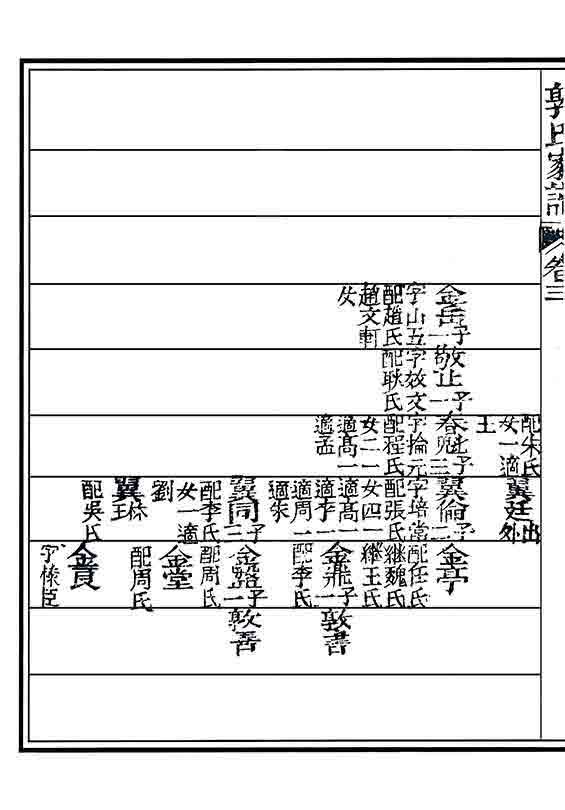 郭氏家譜
卷三
配朱氏
女一適
王
翼廷 出
外
金岳 子一
字山五
配趙氏
趙文軒
女
敬止 子一
字效文
配耿氏
春魁 子三
字掄元
配程氏
女二一
適高一
適孟
翼倫 子二
字培常
配張氏
女四一
適高一
適李一
適周一
適朱
金亭
配任氏
繼魏氏
繼王氏
金 子一
配李氏
敦書
翼同 子三
配李氏
女一適
劉
金路 子一
配周氏
敦善
金堂
配周氏
翼 珠
玉
配吳氏
金貴
字臣